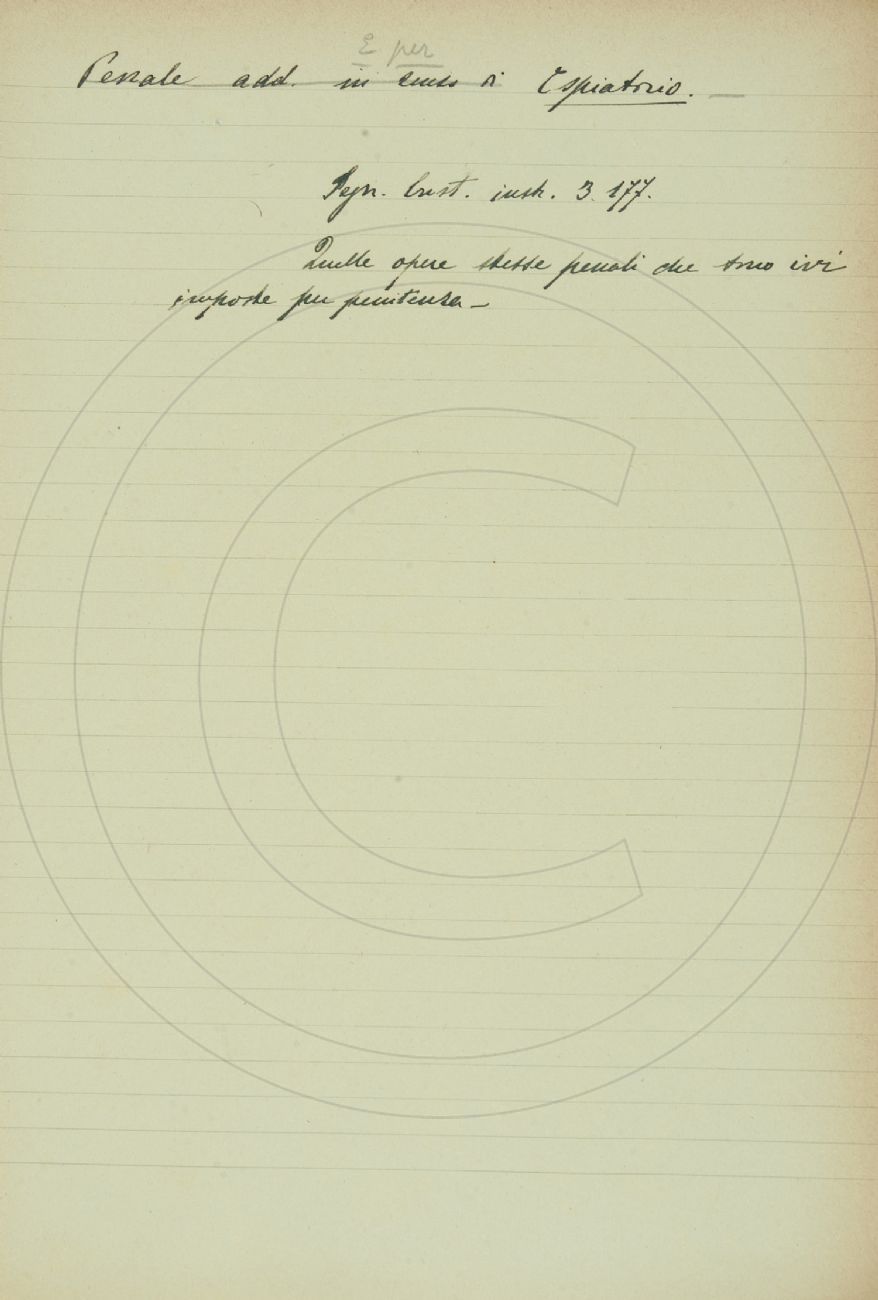 E per
Penale add. in senso di Espiatorio. —
Segn. Crist. instr. 3. 177.
Quelle opere stesse penali che sono ivi
imposte per penitenza —